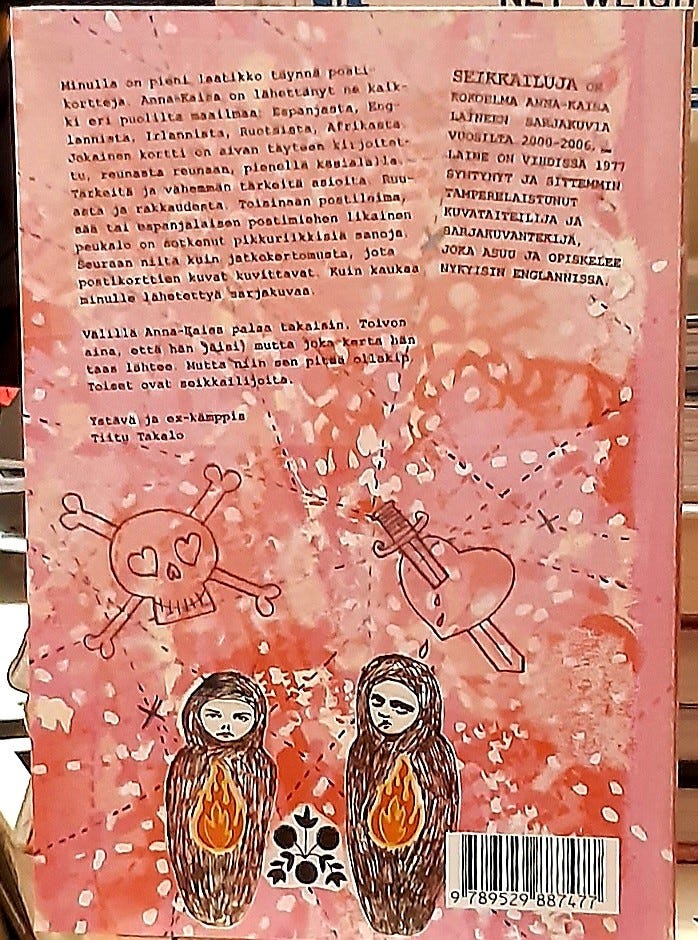 NET WEIGH
Minulla on pieni laatikko täynnä posti-
kortteja. Anna-Kaisa on lähettänyt ne kaik-
ki eri puolilta maailmaa: Espanjasta, Eng-
lannista, Irlannista, Ruotsista, Afrikasta.
Jokainen kortti on aivan täyteen kirjoitet-
tu, reunasta reunaan, pienellä käsialalla.
Tärkeitä ja vähemmän tärkeitä asioita. Ruu-
asta ja rakkaudesta. Toisinaan postileima,
sää tai espanjalaisen postimiehen likainen
peukalo on sotkenut pikkuriikkisiä sanoja.
Seuraan niitä kuin jatkokertomusta, jota
postikorttien kuvat kuvittavat. Kuin kaukaa
minulle lähetettyä sarjakuvaa.
Välillä Anna-Kaisa palaa takaisin. Toivon
aina, että hän jäisi, mutta joka kerta hän
taas lähtee. Mutta niin sen pitää ollakin.
Toiset ovat seikkailijoita.
Ystävä ja ex-kämppis
Tiitu Takalo
SEIKKAILUJA ON
KOKOELMA ANNA-KAISA
LAINEEN SARJAKUVIA
VUOSILTA 2000-2006.
LAINE ON VIHDISSÄ 1977
SYNTYNYT JA SITTEMMIN
TAMPERELAISTUNUT
KUVATAITEILIJA JA
SARJAKUVANTEKIJÄ,
JOKA ASUU JA OPISKELEE
NYKYISIN ENGLANNISSA.
9 789529 887477